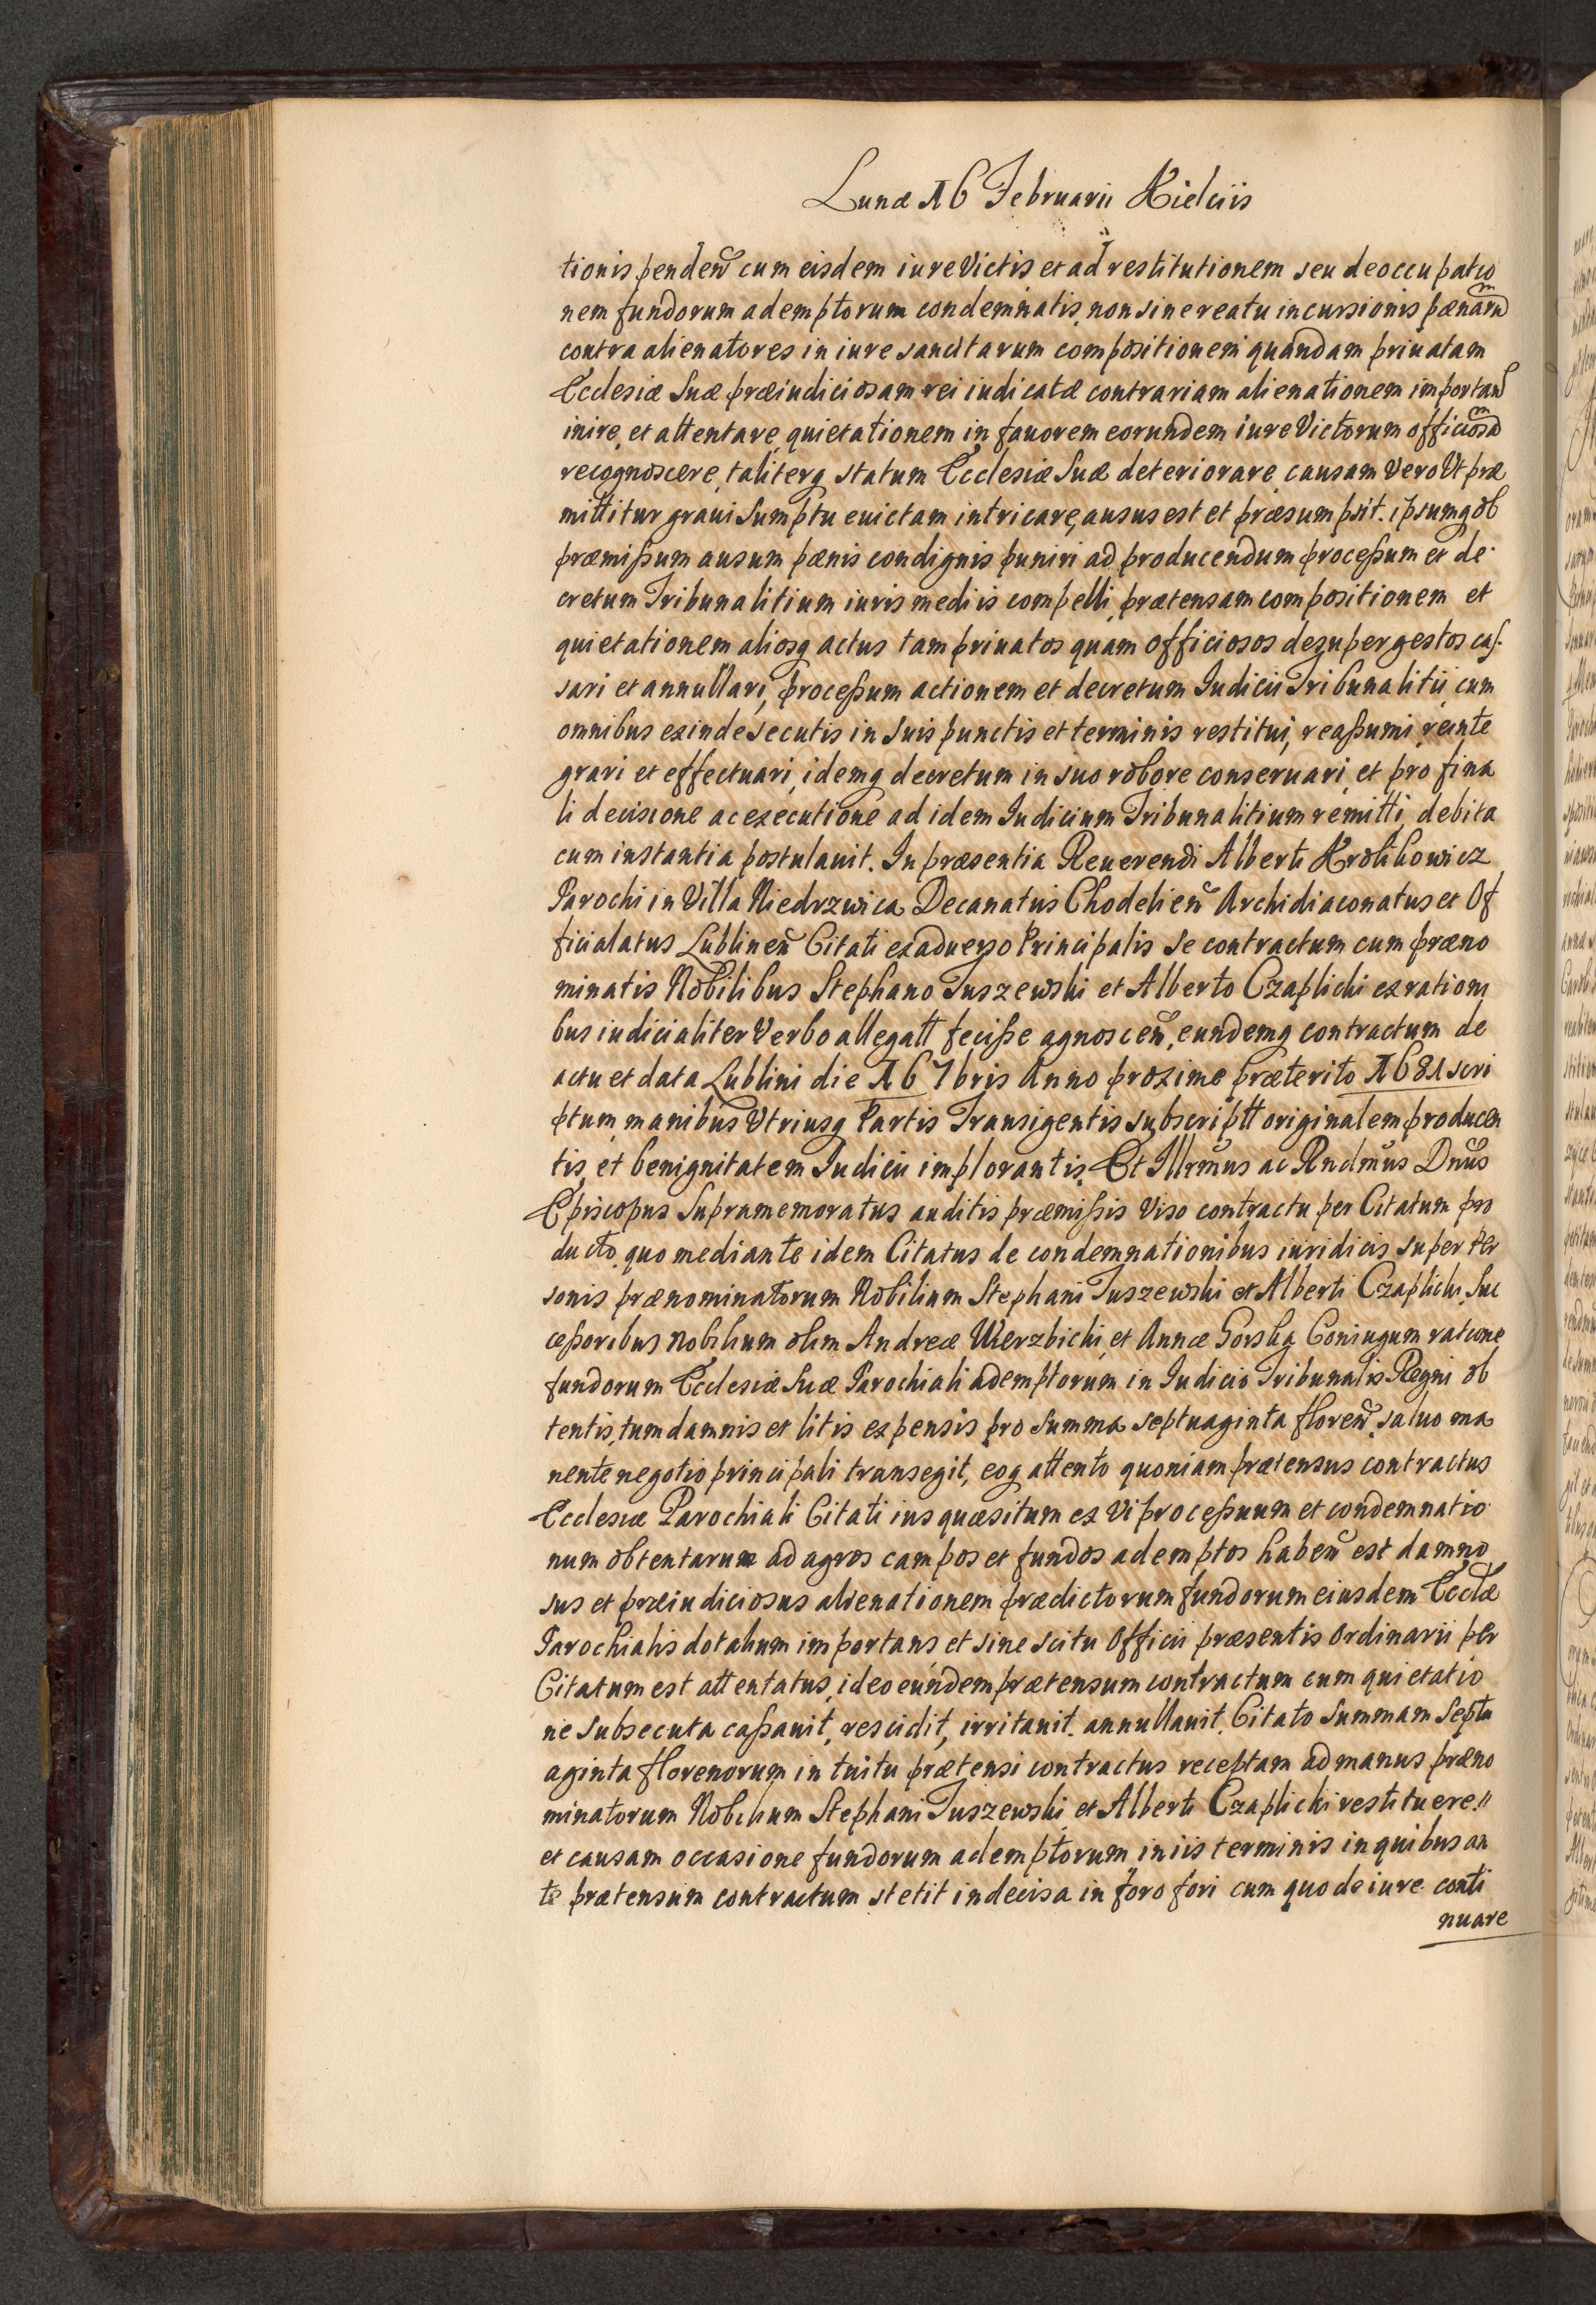 Lunæ 16 Februarii Kielciis
tionis penden̄ cum eisdem iure Victis et ad restitutionem seu deoccupatio
nem fundorum ademptorum condemnatis, non sine reatu incursionis pænarum
contra alienatores in iure sancitarum compositionem quandam priuatam
Ecclesiæ Suæ præiudiciosam rei iudicatæ contrariam alienationem importan̄
inire, et attentare, quietationem in fauorem eorundem iure Victorum officiosam
recognoscere, taliterq statum Ecclesiæ Suæ deteriorare, causam vero Vt præ
mittitur graui Sumptu euictam intricare, ausus est et præsumpsit. ipsumq ob
præmißum ausum pænis condignis puniri ad producendum proceßum et de
cretum Tribunalitium iuris mediis compelli, prætensam compositionem et
quietationem aliosq actus tam priuatos quàm officiosos desuper gestos cas
sari et annullari, proceßum actionem et decretum Iudicii Tribunalitii cum
omnibus exinde secutis in Suis punctis et terminis restitui, reaßumi reinte
grari et effectuari, idemq decretum in suo robore conseruari, et pro fina
li decisione ac executione ad idem Iudicium Tribunalitium remitti, debita
cum instantia postulauit. In præsentia Reuerendi Alberti Krolikowicz
Parochi in Villa Niedrzwica Decanatus Chodelien̄ Archidiaconatus et Of
ficialatus Lublinen̄ Citati ex aduerso Principalis se contractum cum præno
minatis Nobilibus Stephano Tuszewski et Alberto Czaplicki ex rationi
bus iudicialiter Verbo allegatt feciße agnoscen̄, eundemq contractum de
actu et data Lublini die 16 7bris Anno proxime præterito 1681 scri
ptum, manibus Vtriusq Partis Transigentis subscriptt originalem producen
tis, et benignitatem Iudicii implorantis. Et Illrm̄us ac Rndm̄us Dn̄us
Episcopus Supramemoratus auditis præmißis Viso contractu per Citatum pro
ducto, quo mediante idem Citatus de condemnationibus iuridicis super Per
sonis prænominatorum Nobilium Stephani Tuszewski et Alberti Czaplicki, Suc
ceßoribus Nobilium olim Andreæ Wierzbicki, et Annæ Gorska Coniugum ratione
fundorum Ecclesiæ Suæ Parochiali ademptorum in Iudicio Tribunalis Regni ob
tentis, tum damnis et litis expensis pro Summa septuaginta floren̄, saluo ma
nente negotio principali transegit, eoq attento quoniam prætensus contractus
Ecclesiæ Parochiali Citati ius quæsitum ex Vi proceßuum et condemnatio
num obtentarum ad agros campos et fundos ademptos haben̄ est damno
sus et præiudiciosus alienationem prædictorum fundorum eiusdem Eccl̄æ
Parochialis dotalium importans, et sine scitu Officii præsentis Ordinarii per
Citatum est attentatus, ideo eúndem prætensum contractum cum quietatio
ne subsecuta caßauit, rescidit, irritauit, annullauit. Citato Summam Septu
aginta florenorum intuitu prætensi contractus receptam ad manus præno
minatorum Nobilium Stephani Tuszewski et Alberti Czaplicki restituere.
et causam occasione fundorum ademptorum in iis terminis in quibus an
te prætensum contractum stetit indecisa in foro fori cum quo de iure conti
nuare